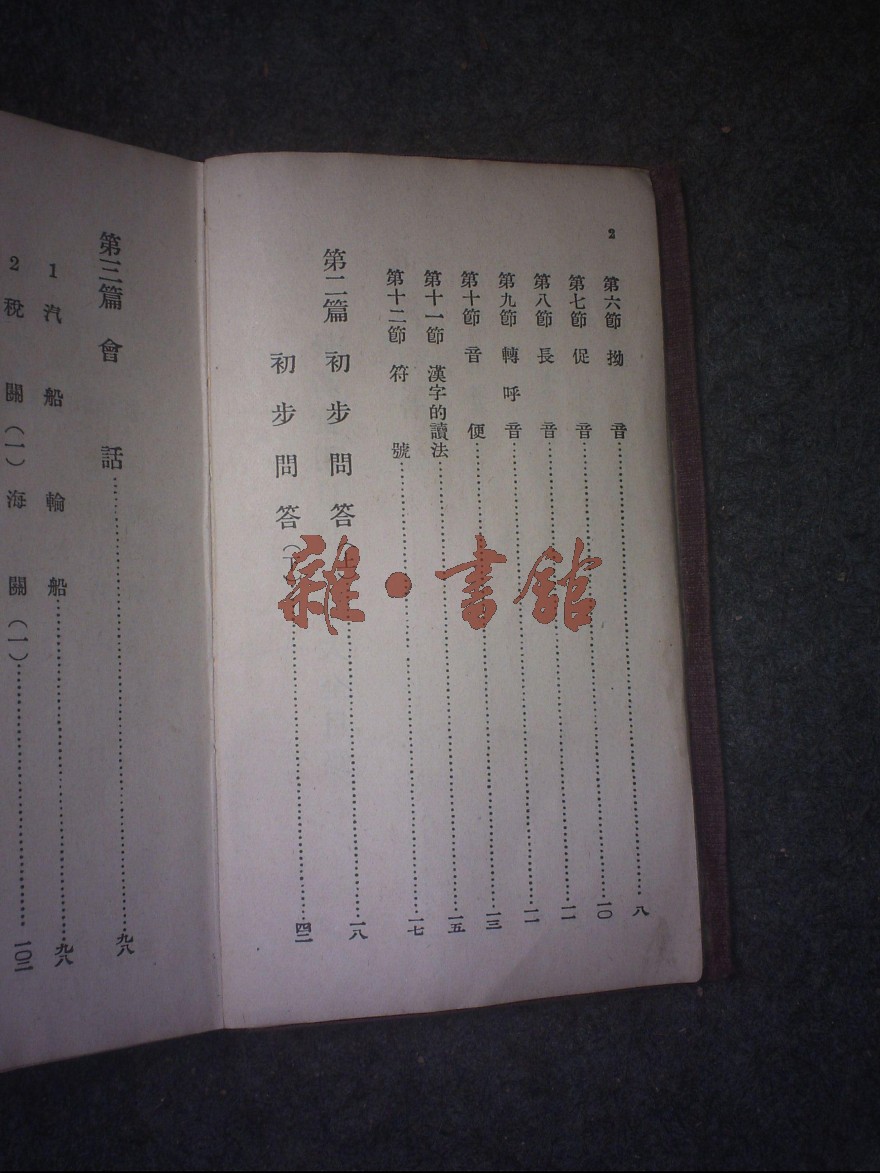 2
第六節 拗音……八
第七節 促音……一〇
第八節 長音……一一
第九節 轉呼音……一一
第十節 音便……一三
第十一節 漢字的讀法……一五
第十二節 符號……一七
第二篇 初步問答……一八
初步問答(下)……四二
第三篇 會話……九八
1 汽船 輪船……九八
2 稅關(一) 海關(一)……一〇二
雜·書館